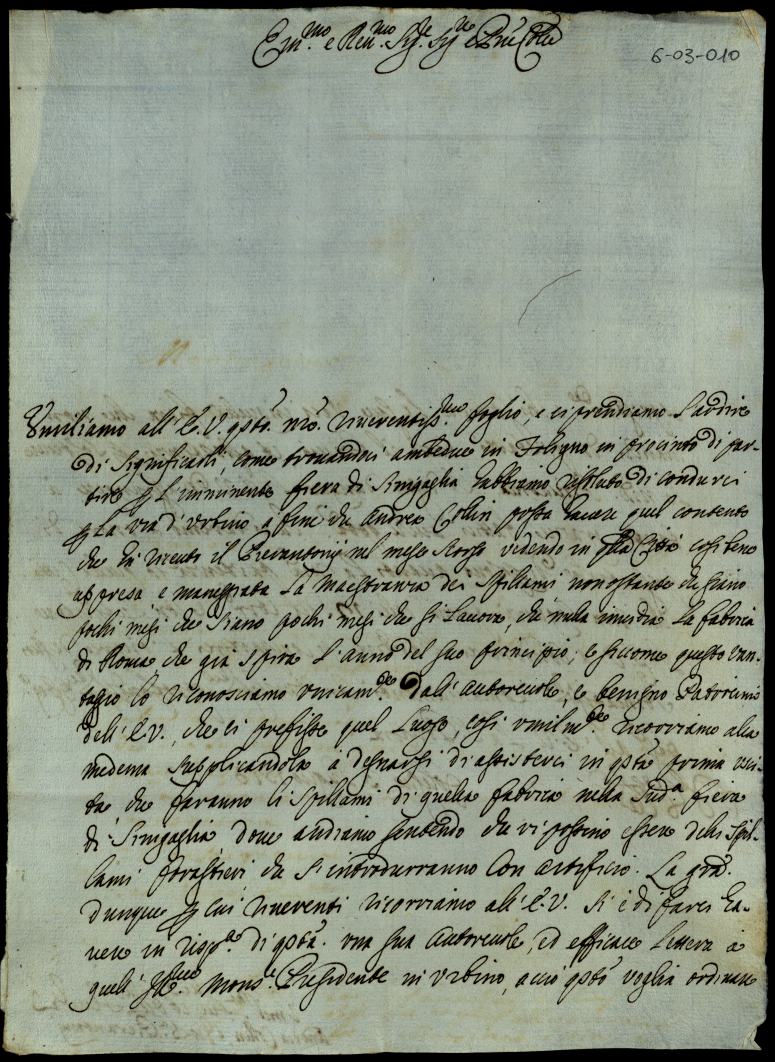 Em.mo e Ren.mo Sig.re Sig.re e Prone Colmo
6-03-010
Umiliamo all'E.V. qsto nro. riverentiss.mo foglio, e ci prendiamo l'ardire
di significarli, come trovandoci ambedue in Foligno in procinto di par-
tire p l'imminente fiera di Sinigaglia habbiamo risoluto di condurci
p La via d'Urbino affine che Andrea Collin possa havere quel contento
che hà havuto il Pierantonij nel mese scorso vedendo in qsta Città così bene
appresa e maneggiata La Maestranza dei Spillami nonostante che siano
pochi mesi che siano pochi mesi che si Lavora, che nulla invidia La fabrica
di Roma che già spira l'anno del suo principio; e siccome questo van-
tagio lo riconosciamo unicam.te dall'autorevole, e benigno Patrocinio
dell'E.V., che ci prefisse quel Luogo, così umilm.te ricorriamo alla
medema supplicandola à degnarsi di assisterci in qsta prima usci-
ta che faranno li spillami di quella fabrica nella sud.a fiera
di Sinigaglia dove andiamo sentendo che vi possino essere delli Spil-
lami forastieri che s'introdurranno con artificio. La gra.
dunque p cui riverenti ricorriamo all'E.V. si è di farci ha-
vere in risp.ta di qsta una sua autorevole, ed efficace Lettera à
quell'Ill.mo Mons.re Presidente in Urbino, acciò qsto voglia ordinare